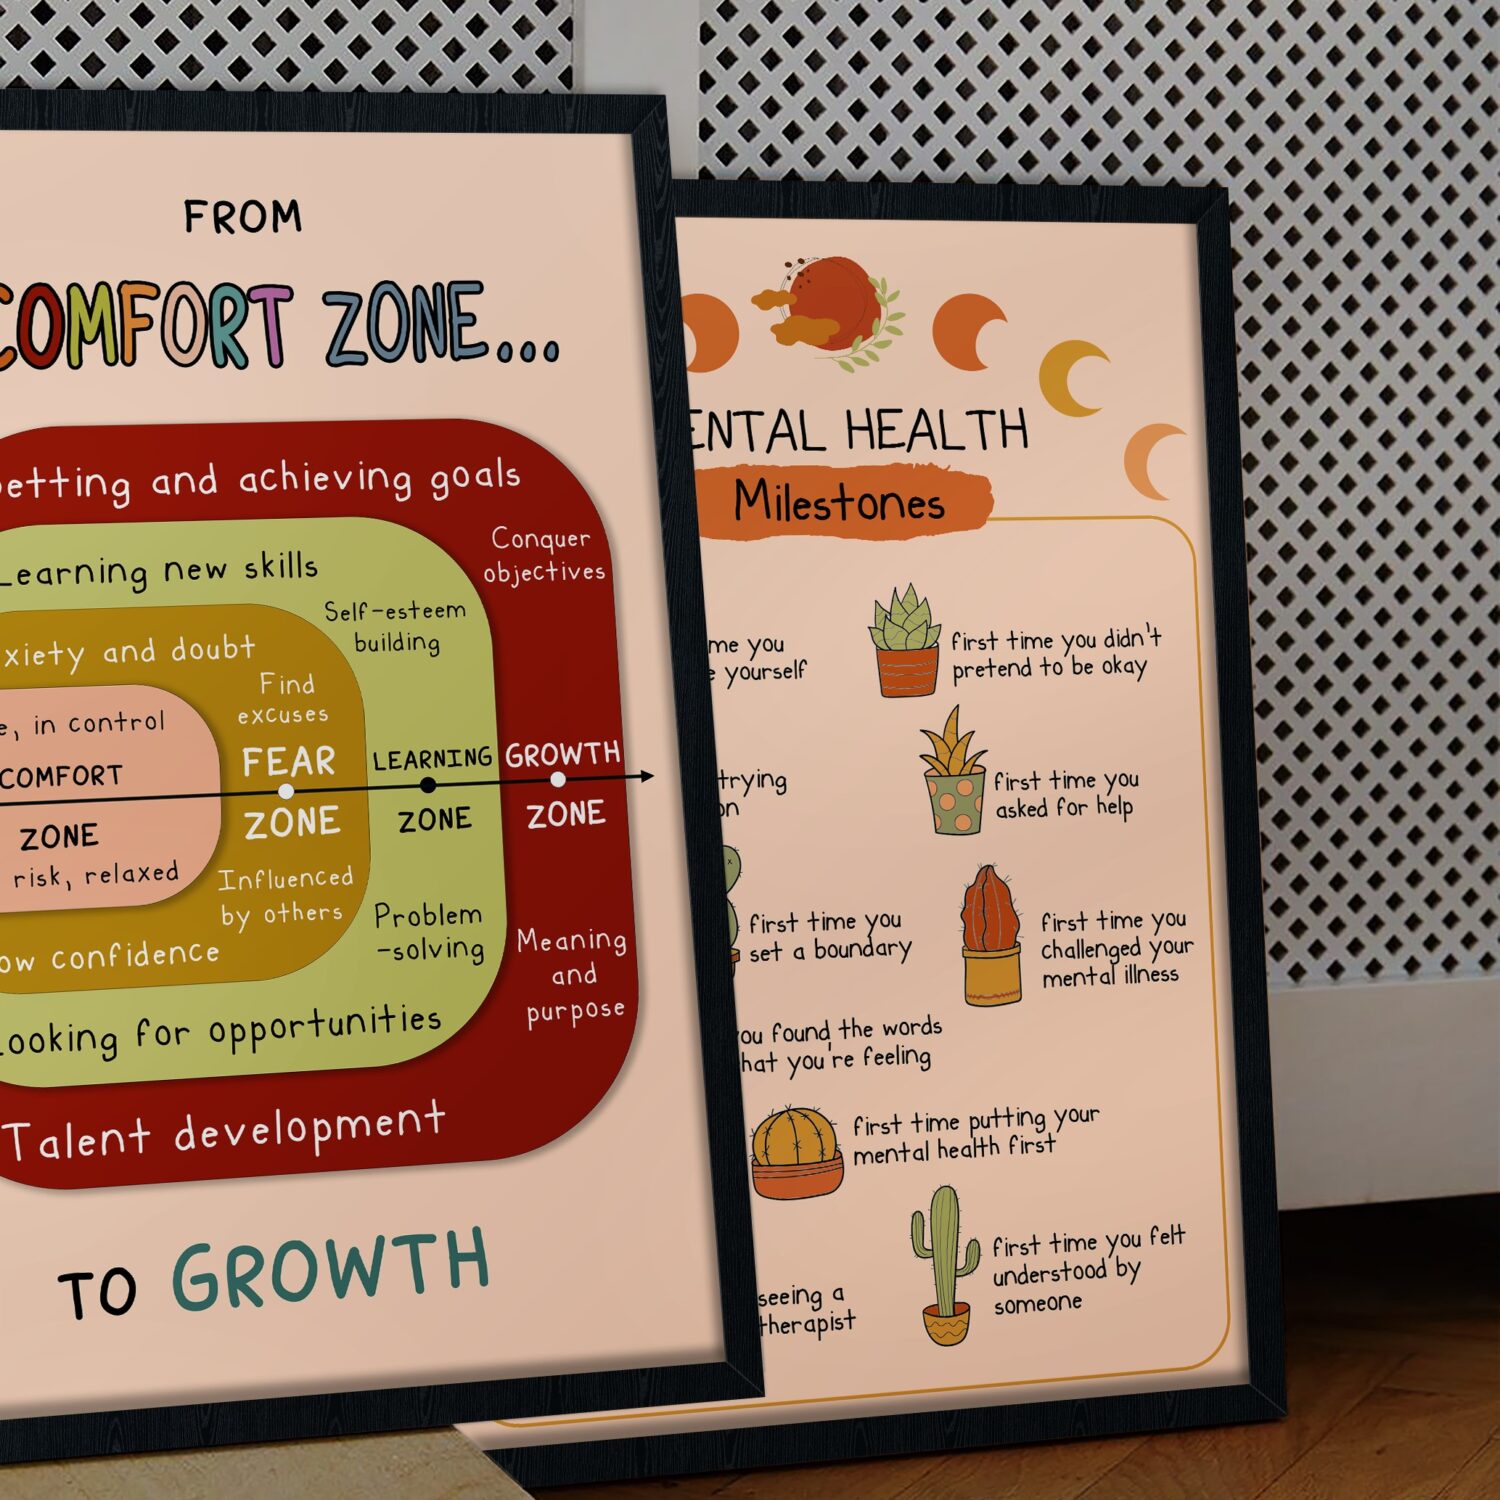 FROM
COMFORT ZONE...
and achieving goals
Conquer
objectives
Learning new skills
Self-esteem
building
and doubt
Find
excuses
in control
COMFORT
ZONE
risk, relaxed
FEAR
ZONE
LEARNING
ZONE
GROWTH
ZONE
Influenced
by others
confidence
Problem
-solving
Looking for opportunities
Meaning
and
purpose
Talent development
TO GROWTH
HEALTH
Milestones
me you
yourself
first time you didn't
pretend to be okay
trying
first time you
asked for help
first time you
set a boundary
first time you
challenged your
mental illness
found the words
you're feeling
first time putting your
mental health first
first time you felt
understood by
someone
seeing a
therapist